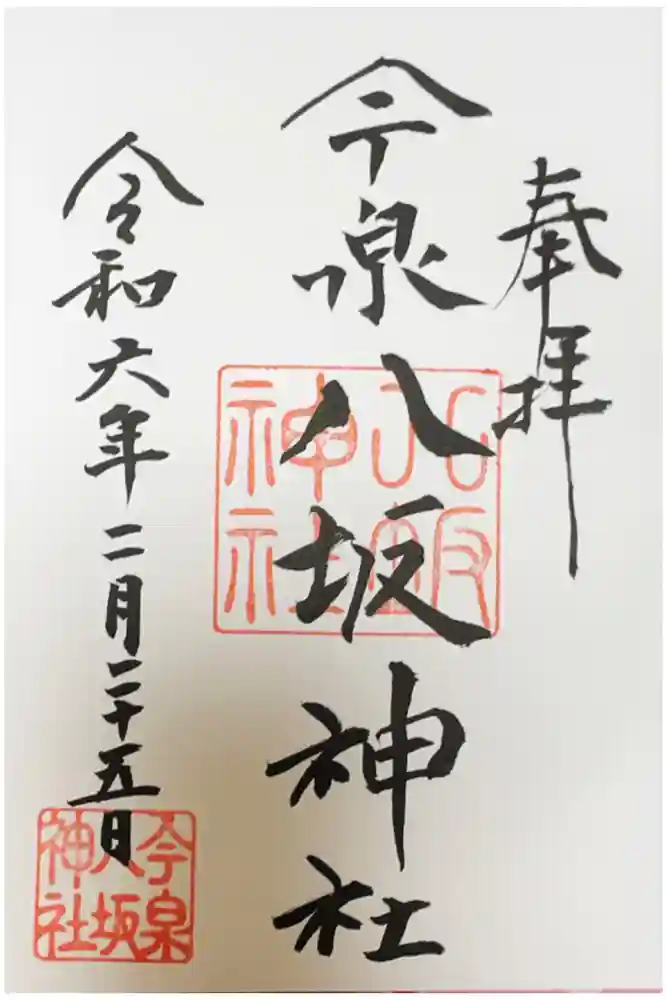 奉拝
今泉八坂神社
八坂
神社
令和六年二月二十五日
今泉
八坂
神社